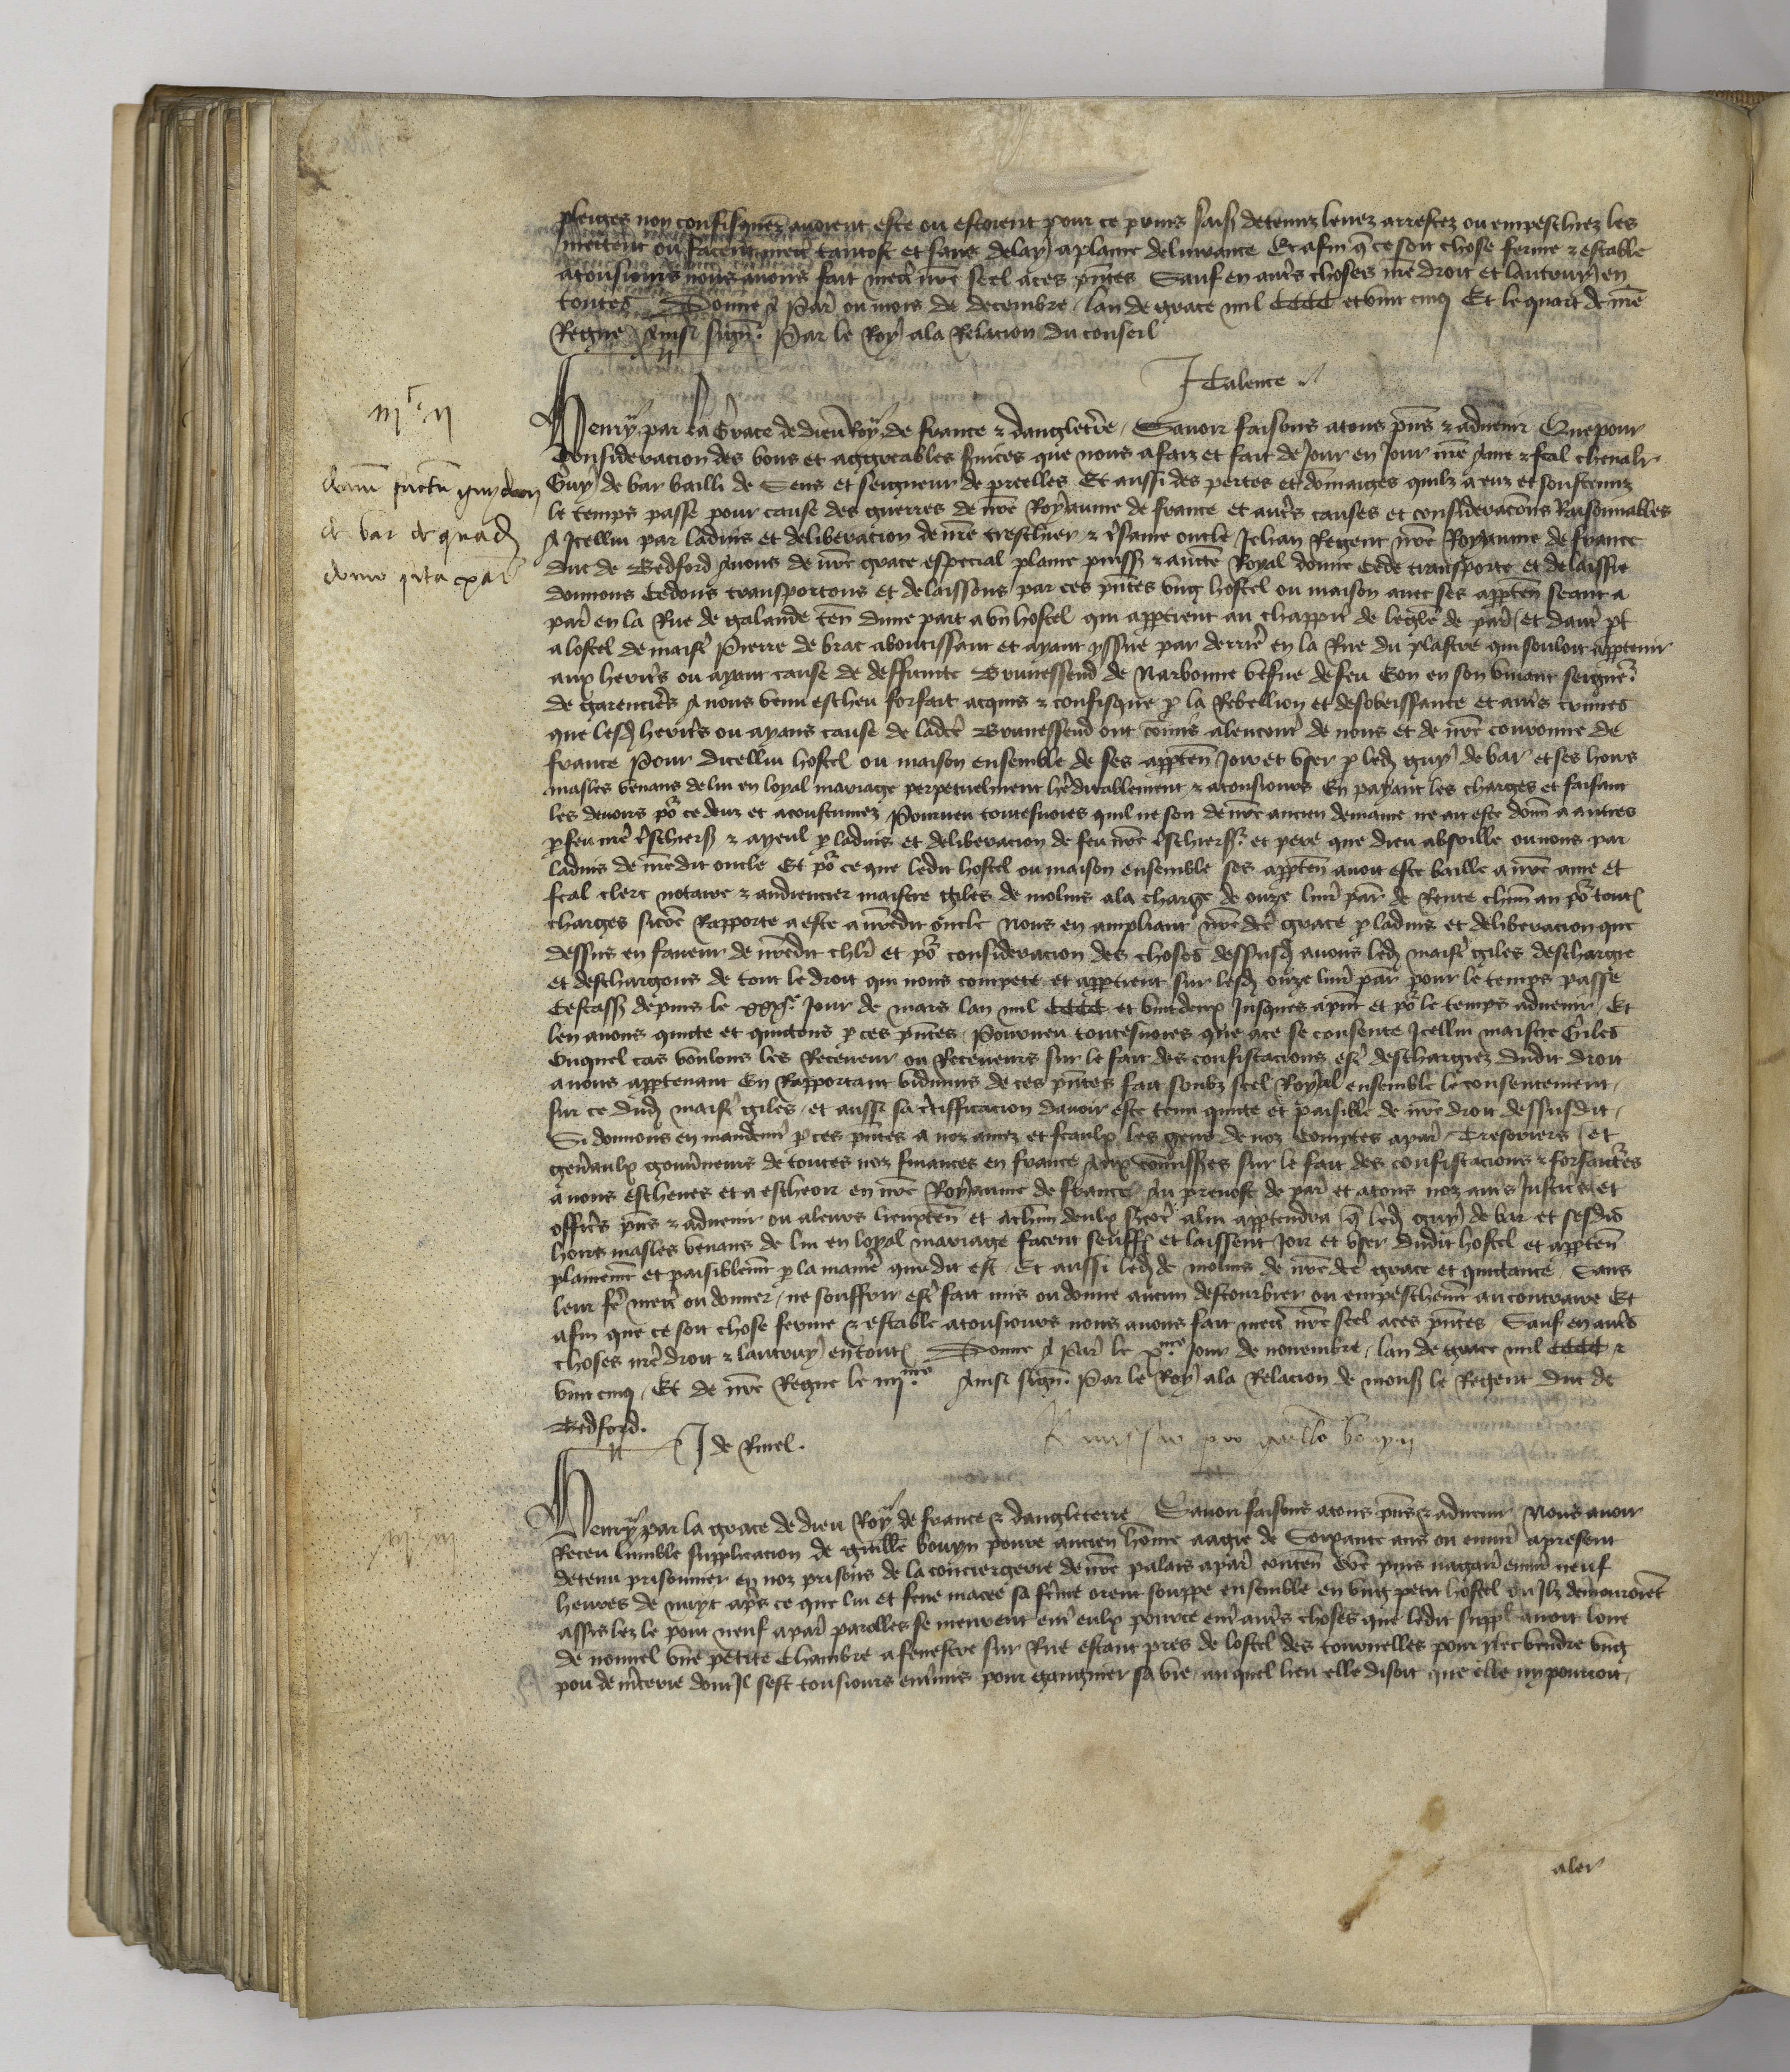 pleiges non confisquez avoient este ou estoient pour ce prins saisis detenuz levez arrestez ou empeschiez les
mettent ou facent mettre tantost et sans delay a plaine delivrance Et afin q ce soit chose ferme & estable
atousiours nous avons fait mettre nre seel a ces pntes Sauf en autres choses nre droit et lautruy en
toutes Donne A Paris ou mois de decembre lan de grace mil CCCC et vint cinq Et le quart de nre
Regne Ainsi signe Par le Roy ala Relacion du conseil
J Calence
iiic ii
Henry par la Grace de dieu Roy de france & dangleterre Savoir faisons atous pns & advenir Que pour
Consideracion des bons et aggreables services que nous a faiz et fait de Jour en Jour nre Ame & feal chevalier
donum factum guydoni
Guy de bar bailli de Sens et seigneur de preelles Et aussi des pertes et dommaiges quilz a euz et soustenuz
le temps passe pour cause des guerres de nre Royaume de france et autres causes et consideracons Raisonnables
de bar de quadam
A Icellui par ladvis et deliberacion de nre treschier & tresame oncle Jehan Regent nre Royaume de france
domo sita par
duc de Bedford Avons de nre grace especial plaine puissance & aucte Royal donne Cede transporte et delaissie
donnons Cedons transportons et delaissons par ces pntes ung hostel ou maison avec ses apptenances seant a
paris en la Rue de galande ten dune part a un hostel qui apptient au chappitre de leglise de paris et dautre pt
a lostel de maistre Pierre de brac aboutissant et ayant yssue par derriere en la Rue du plastre qui souloit apptenir
aux heritiers ou ayant cause de deffuncte Brunessend de Narbonne vefve de feu Yon en son vivant seigneur
de garencieres A nous venu escheu forfait acquis & confisque p la Rebellion et desobeissance et autres crimes
que lesd heritiers ou ayans cause de ladcte Brunessend ont commis alencontre de nous et de nre couronne de
france Pour dicellui hostel ou maison ensemble de ses apptenances Joir et user p led guy de bar et ses hoirs
masles venans de lui en loyal mariage perpetuelment hereditablement & atousiours En payant les charges et faisant
les devoirs por ce deuz et acoustumez Pourveu toutesvoies quil ne soit de nre ancien demaine ne ait este donne a autres
p feu nre treschier sr & ayeul p ladvis et deliberacion de feu nre treschier sr et pere que dieu absoille ou nous par
ladvis de nredit oncle Et por ce que ledit hostel ou maison ensemble ses apptenances avoit este baille a nre ame et
feal clerc notaire & audiencier maistre giles de molins ala charge de onze livres par de Rente chun an por toutes
charges sicome Rapporte a este a nredit oncle Nous en ampliant nredcte grace p ladvis et deliberacion que
dessus en faveur de nredit chlr et por consideracion des choses dessusd avons led maistre giles deschargie
et deschargons de tout le droit qui nous compete et apptient sur lesd onze livres par pour le temps passe
Cestassavoir depuis le jour de mars lan mil CCCC et vintdeux Jusques apnt et por le temps advenir Et
len avons quicte et quictons p ces pntes Pourveu toutesvoies que ace se consente Icellui maistre Giles
Ouquel cas voulons les Receveur ou Receveurs sur le fait des confiscacions estre deschargiez dudit droit
a nous apptenant En Rapportant vidimus de ces pntes fait soubz seel Royal ensemble le consentement
sur ce dud maistre giles et aussi sa certifficacion davoir este tenu quicte et paisible de nre droit dessusdit
Si donnons en mandement p ces pntes a noz amez et feaulx les gens de noz Comptes aparis Tresoriers et
generaulx gouverneurs de toutes noz finances en france Aux commissaires sur le fait des confiscacions & forfaictures
a nous escheues et a escheoir en nre Royaume de france Au prevost de paris et atous noz autres Justiciers et
officiers pns & advenir ou aleurs lieuxten et achun deulx sicome alui apptendra q led guy de bar et sesdis
hoirs masles venans de lui en loyal mariage facent seuffrent et laissent Joir et user dudit hostel et apptenances
plainement et paisiblement p la maniere que dit est Et aussi led de molins de nredcte grace et quictance Sans
leur fere mettre ou donner ne souffrir estre fait mis ou donne aucun destourbier ou empeschement au contraire Et
afin que ce soit chose ferme & estable atousiours nous avons fait mettre nre seel aces pntes Sauf en autres
choses nre droit & lautruy en toutes Donne A Paris le xme Jour de novembre lan de grace mil CCCC &
vint cinq Et de nre Regne le iiiime Ainsi signe Par le Roy ala Relacion de monsr le Regent duc de
Bedford.
J de Rinel.
Remissio pro guillo bouyn
Henry par la grace de dieu Roy de france & dangleterre Savoir faisons atous pns & advenir Nous avoir
Receu lumble supplicacion de guille bouyn povre ancien homme aagie de Soixante ans ou environ apresent
detenu prisonnier en noz prisons de la conciergerie de nre palais aparis conten que puis nagaires environ neuf
heures de nuyt apres ce que lui et feue macee sa feme orent souppe ensemble en ung petit hostel ou Ilz demouroient
assis lez le pont neuf aparis parolles se meurent entre eulx pource entre autres choses que ledit suppl avoit loue
de nouvel une petite Chambre a fenestre sur Rue estant pres de lostel des tournelles pour ylec vendre ung
pou de mercerie dont Il sest tousiours entremis pour gaingnier sa vie auquel lieu elle disoit que elle ny pourroit
aler